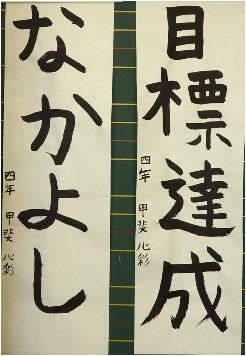 目標達成
四年 甲斐心彩
なかよし
四年 甲斐心彩